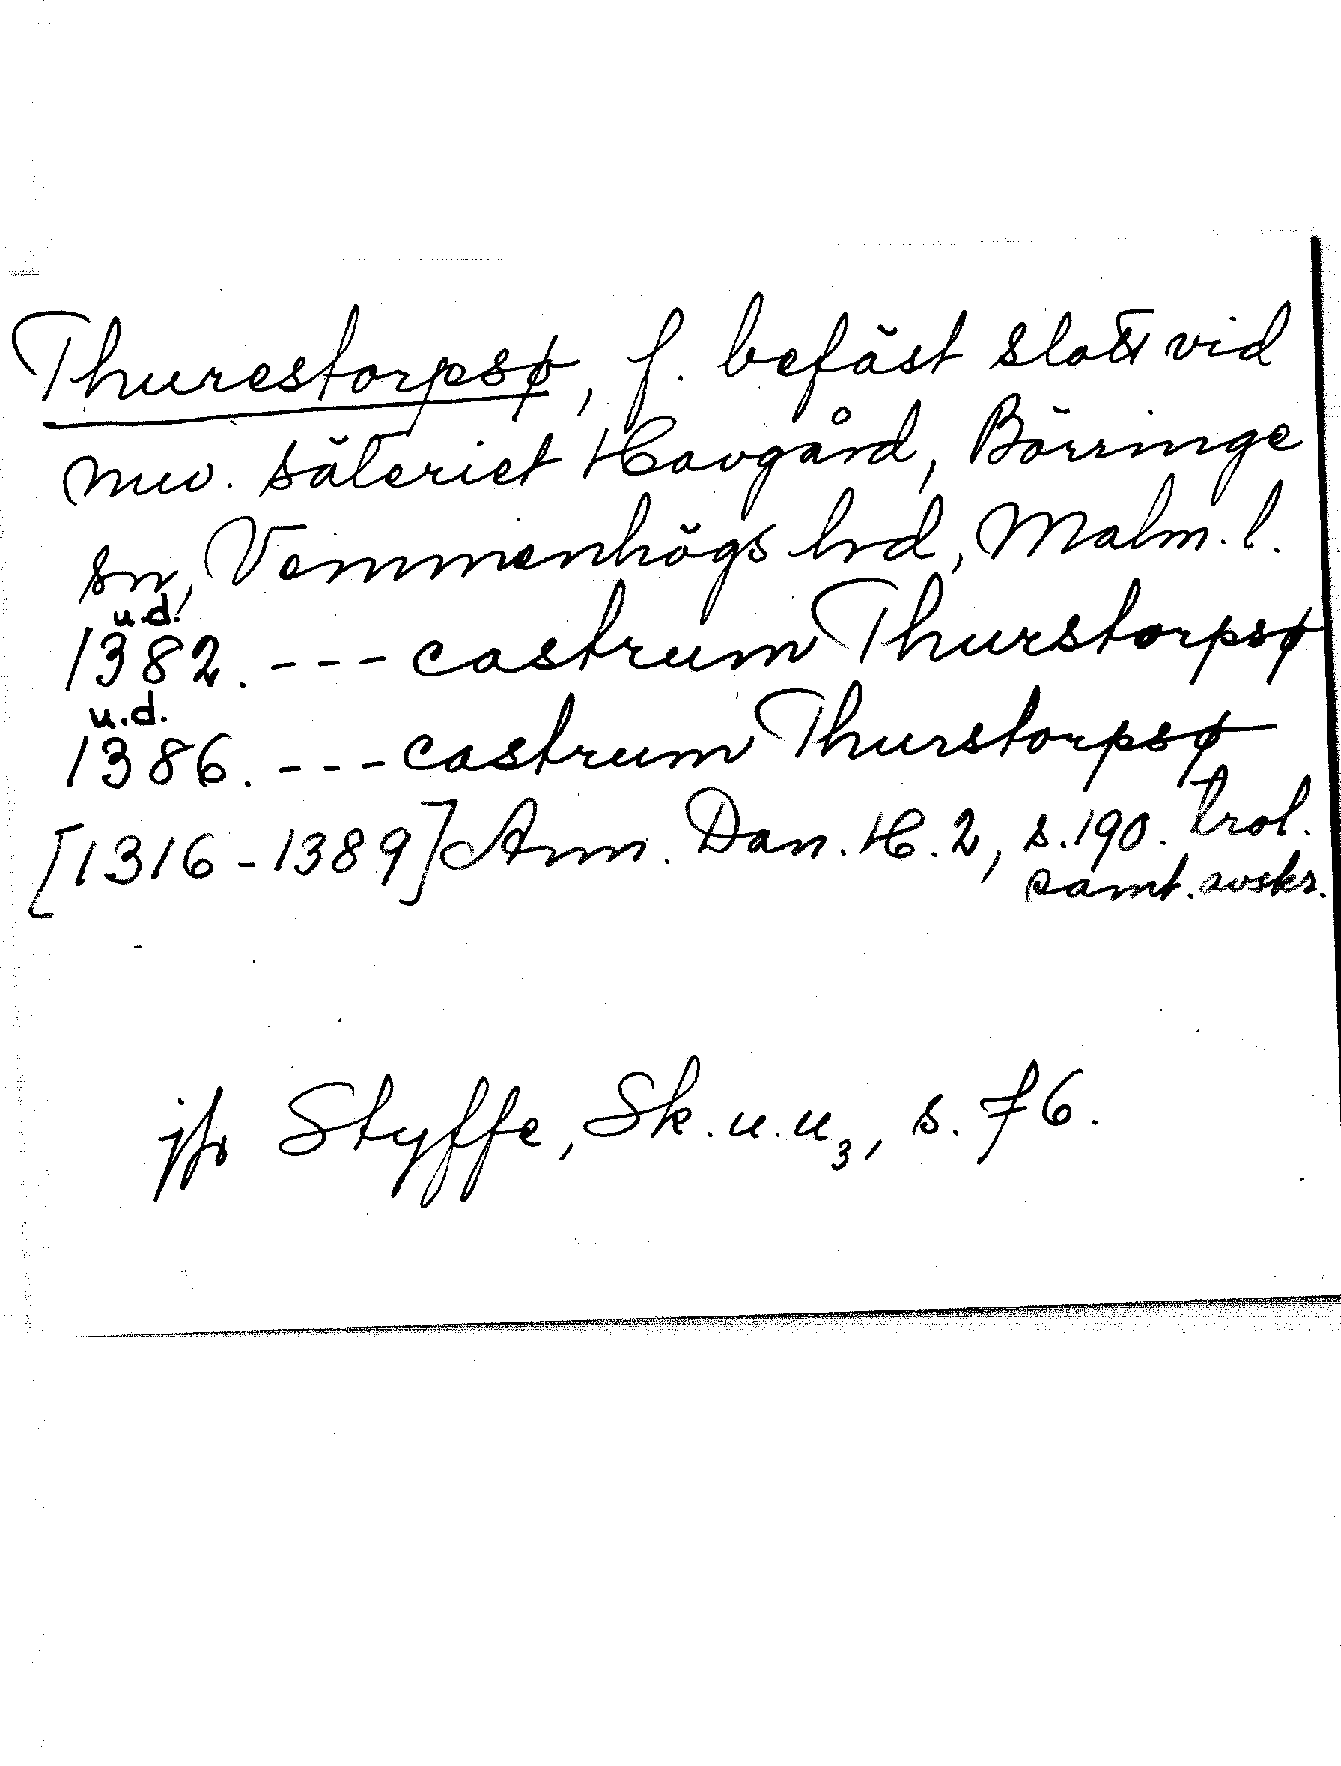 Thurestorpsø, f. befäst slott vid
nuv. säteriet Havgård, Börringe
sn, Vemmenhögs hrd, Malm. l.
u.d.
1382. --- castrum Thurstorpsø
u.d.
1386. --- castrum Thurstorpsø
[1316-1389] Ann. Dan. H. 2, s. 190. trol.
samt. avskr.
jfr Styffe, Sk. u. u3, s. 76.